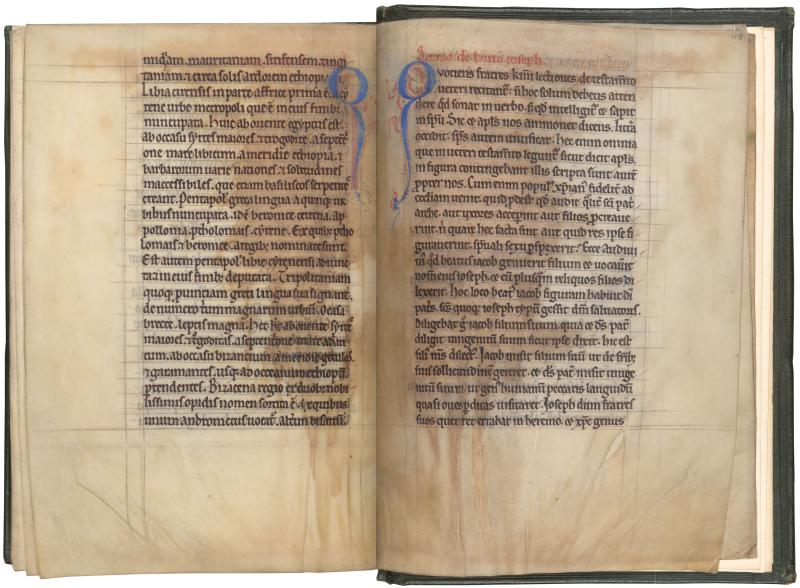 midiam. mauritaniam. sitifensem. tingi
taniam. ⁊ circa solis ardorem ethiopiam.
Libia cirensis in parte affrice prima ē. a cy
rene urbe metropoli que ē in eius finibꝰ
nuncupata. Huic ab oriente egyptus est.
ab occasu syrtes maiores ⁊ trogodite. a septēt
one mare libicum. a meridie ethiopia. ⁊
barbarorum uarie nationes ⁊ solitudines
inaccessibiles. que etiam basiliscos serpentes
creant. Pentapolis greca lingua a quinque ur
bibus nuncupata. idē beronice ceutria. ap
pollonia. ptholomais. cyrene. Ex quibꝰ ptho
lomais ⁊ beronice. a regibꝰ nominate sunt.
Est autem pentapolis libie cyrensi adiunc
ta in eius finibꝰ deputata. Tripolitaniam
quoqꝫ prouinciam greci lingua sua signant.
de numero trium magnarum urbiū. Ocasa
brete. leptis magna. Hec habet ab oriente syrtes
maiores ⁊ trogoditas. a septentrione mare adriati
cum. ab occasu bizantium. a meridie getulos
⁊ garamantes. usqꝫ ad occeanum ethiopicū
prendentes. Bizacena regio ex duobꝰ nobi
lissimis opidis nomen sortita ē. ex quibus
unum andrometus uocat̄.
Sermo de beato ioseph.
Quotiens fratres kr̄mi lectiones de testam̄to
ueteri recitant̄. n̄ hoc solum debetis atten
dere qd̄ sonat in uerbo. s; qd̄ intelligit̄ ⁊ sapit
in sp̄u. Sic ⁊ apl̄s nos ammonet dicens. Littera
occidit. sp̄s autem uiuificat. Hec enim omnia
que in ueteri testam̄to legunt̄ sicut dicit apl̄s.
in figura contingebant illis scripta sunt aut̄
ꝓpter nos. Cum enim popul' xp̄ian' fidelit̄ ad
eccl̄iam uenit. quid ꝓdest qd̄ audit q̄lit̄ sc̄i pat̄
arche. aut uxores accepint aut filios ꝓcreaue
rint. n̄ quare hec facta sint aut quid res ipse fi
gurauerint. sp̄uali sensu ꝓspexerit. Ecce audiui
m̄ qd̄ beatus iacob genuerit filium ⁊ uocauit
nom̄ eius ioseph. ⁊ eū plusq̄m reliquos filios di
lexerit. Hoc loco beat' iacob figuram habuit dī
patis. sc̄s quoqꝫ ioseph typū gessit dn̄i saluatoris.
Diligebat g̊ iacob filium suum quia ⁊ ds̄ pat̄
diligit unigenitū suum sicut ipse dixit. hic est
filī ms̄ dilect'. Iacob misit filium suū ut de frībꝰ
suis sollicitudinē gereret. ⁊ ds̄ pat̄ misit unige
nitū suum. ut gen' humanū peccatis languidū
quasi oues ꝑditas uisitaret. Ioseph dum fratres
suos queret errabat in heremo. ⁊ xp̄c genus